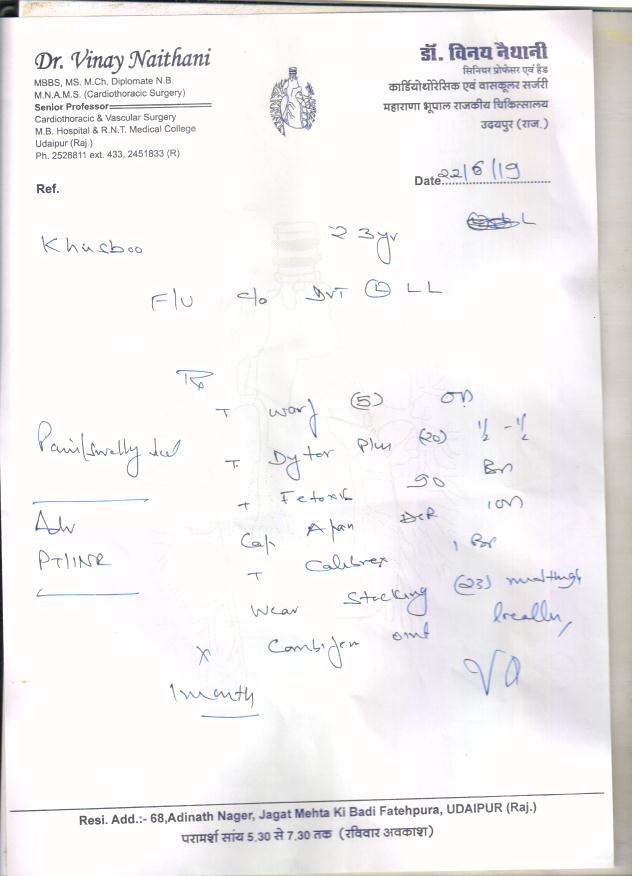 Dr. Vinay Naithani
MBBS, MS. M.Ch. Diplomate N.B.
M.N.A.M.S. (Cardiothoracic Surgery)
Senior Professor
Cardiothoracic & Vascular Surgery
M.B. Hospital & R.N.T. Medical College
Udaipur (Raj.)
Ph. 2528811 ext. 433, 2451833 (R)
डॉ. विनय नैथानी
सिनियर प्रोफेसर एवं हैड
कार्डियोथोरेसिक एवं वासकूलर सर्जरी
महाराणा भूपाल राजकीय चिकित्सालय
उदयपुर (राज.)
Ref.
Date 22/6/19
Khusboo 23 yr
F/U c/o DVT (L) LL
Rx
T warf (5) OD
Pain/swelly
T Dytor Plus (20) 1/2 - 1/2
T Fetoxib 90
Adv
Cap Apan
PT/INR
T
Wear Stocking midthigh
oint locally
x
1 month
Resi. Add.:- 68,Adinath Nager, Jagat Mehta Ki Badi Fatehpura, UDAIPUR (Raj.)
परामर्श सांय 5.30 से 7.30 तक (रविवार अवकाश)